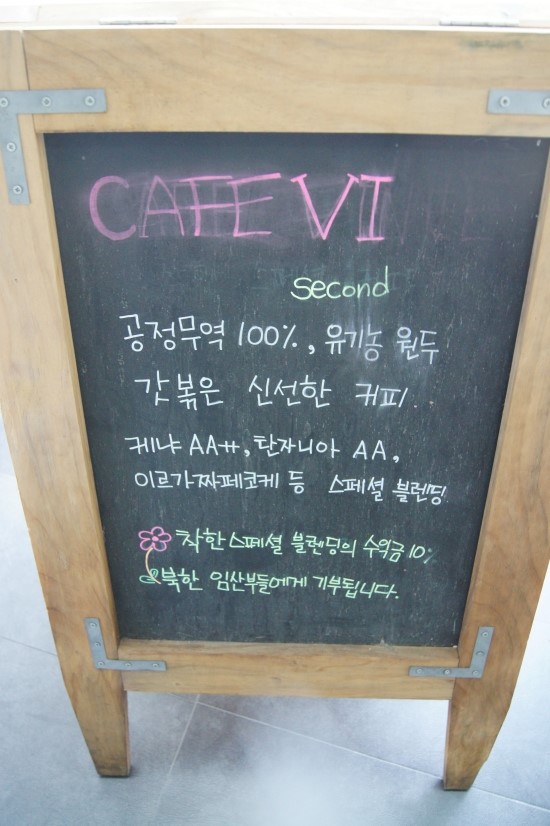 CAFE VI
second
공정무역 100%, 유기농 원두
갓볶은 신선한 커피
케냐 AA++, 탄자니아 AA,
이르가짜페코케 등 스페셜 블렌딩
착한스페셜 블렌딩의 수익금 10%
북한 임산부들에게 기부됩니다.